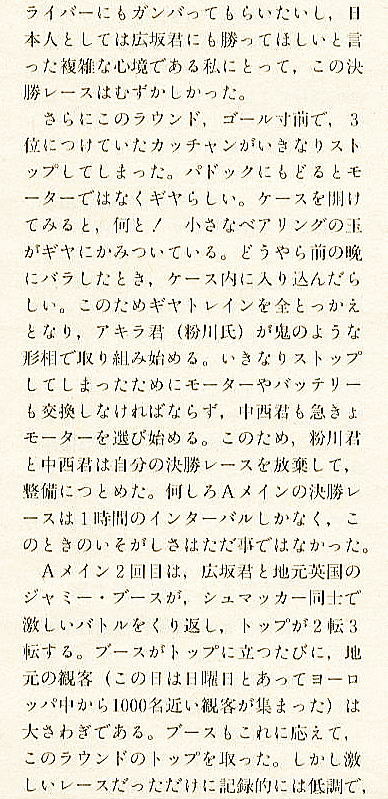 ライバーにもガンバってもらいたいし，日
本人としては広坂君にも勝ってほしいと言
った複雑な心境である私にとって，この決
勝レースはむずかしかった。
　さらにこのラウンド，ゴール寸前で，3
位につけていたカッチャンがいきなりスト
ップしてしまった。パドックにもどるとモ
ーターではなくギヤらしい。ケースを開け
てみると，何と！　小さなベアリングの玉
がギヤにかみついている。どうやら前の晩
にバラしたとき，ケース内に入り込んだら
しい。このためギヤトレインを全とっかえ
となり，アキラ君（粉川氏）が鬼のような
形相で取り組み始める。いきなりストップ
してしまったためにモーターやバッテリー
も交換しなければならず，中西君も急きょ
モーターを選び始める。このため，粉川君
と中西君は自分の決勝レースを放棄して，
整備につとめた。何しろAメインの決勝レ
ースは1時間のインターバルしかなく，こ
のときのいそがしさはただ事ではなかった。
　Aメイン2回目は，広坂君と地元英国の
ジャミー・ブースが，シュマッカー同士で
激しいバトルをくり返し，トップが2転3
転する。ブースがトップに立つたびに，地
元の観客（この日は日曜日とあってヨーロ
ッパ中から1000名近い観客が集まった）は
大さわぎである。ブースもこれに応えて，
このラウンドのトップを取った。しかし激
しいレースだっただけに記録的には低調で，